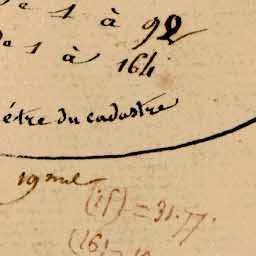 1 à 92
1 à 164
être du cadastre
19 mil
(15) = 31.77.
(16) =